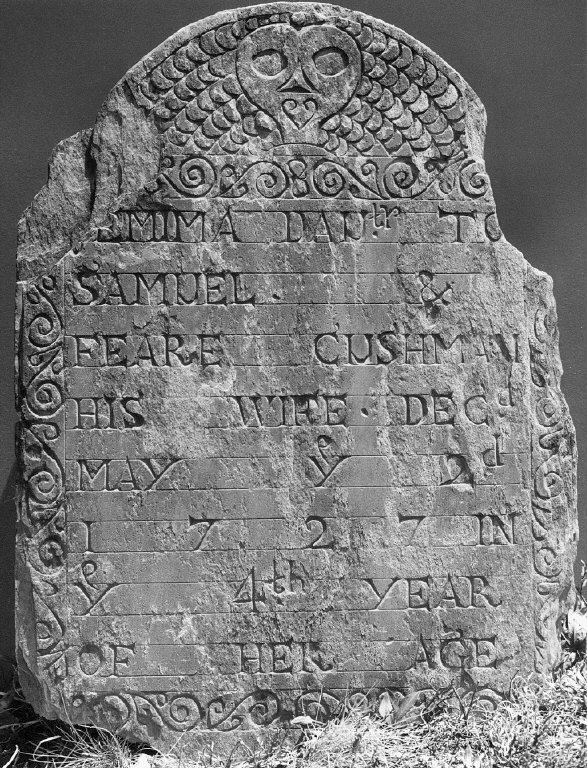 JEMIMA DAUtr TO
SAMUEL &
FEARE CUSHMAN
HIS WIFE · DECd
MAY ye 2d
1727 IN
ye 4th YEAR
OF HER AGE